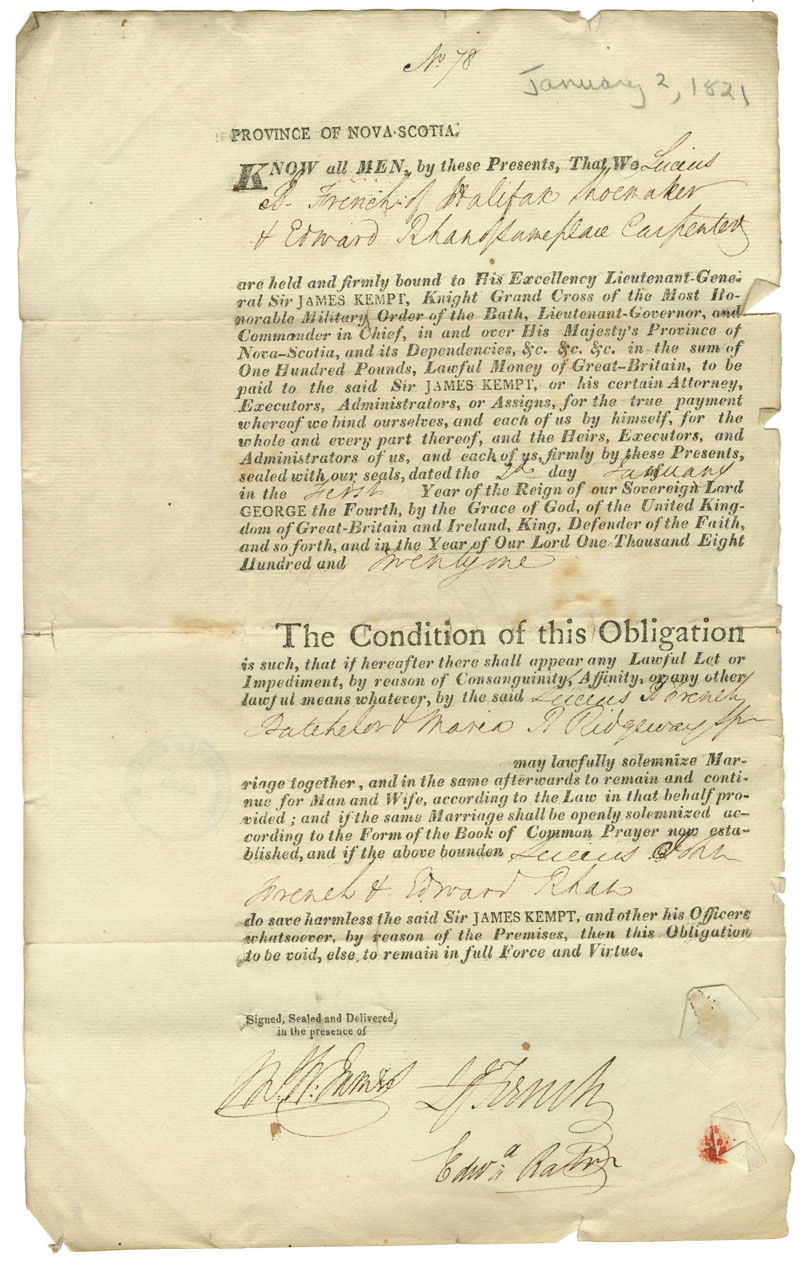 No 78
January 2, 1821
PROVINCE OF NOVA-SCOTIA.
KNOW all MEN, by these Presents, That We Lucius
B. French of Halifax Shoemaker
& Edward Rhan of same place Carpenter
are held and firmly bound to His Excellency Lieutenant-Gene-
ral Sir JAMES KEMPT, Knight Grand Cross of the Most Ho-
norable Military Order of the Bath, Lieutenant-Governor, and
Commander in Chief, in and over His Majesty's Province of
Nova-Scotia, and its Dependencies, &c. &c. &c. in the sum of
One Hundred Pounds, Lawful Money of Great-Britain, to be
paid to the said Sir JAMES KEMPT, or his certain Attorney,
Executors, Administrators, or Assigns, for the true payment
whereof we bind ourselves, and each of us by himself, for the
whole and every part thereof, and the Heirs, Executors, and
Administrators of us, and each of us, firmly by these Presents,
sealed with our seals, dated the 2d day January
in the First Year of the Reign of our Sovereign Lord
GEORGE the Fourth, by the Grace of God, of the United King-
dom of Great-Britain and Ireland, King, Defender of the Faith,
and so forth, and in the Year of Our Lord One Thousand Eight
Hundred and Twenty one
The Condition of this Obligation
is such, that if hereafter there shall appear any Lawful Let or
Impediment, by reason of Consanguinity, Affinity, or any other
lawful means whatever, by the said Lucius B French
Batchelor & Maria R Ridgeway Spr
may lawfully solemnize Mar-
riage together, and in the same afterwards to remain and conti-
nue for Man and Wife, according to the Law in that behalf pro-
vided; and if the same Marriage shall be openly solemnized ac-
cording to the Form of the Book of Common Prayer now esta-
blished, and if the above bounden Lucius John
French & Edward Rhan
do save harmless the said Sir JAMES KEMPT, and other his Officers
whatsoever, by reason of the Premises, then this Obligation
to be void, else to remain in full Force and Virtue.
Signed, Sealed and Delivered,
in the presence of
L French
Edwd